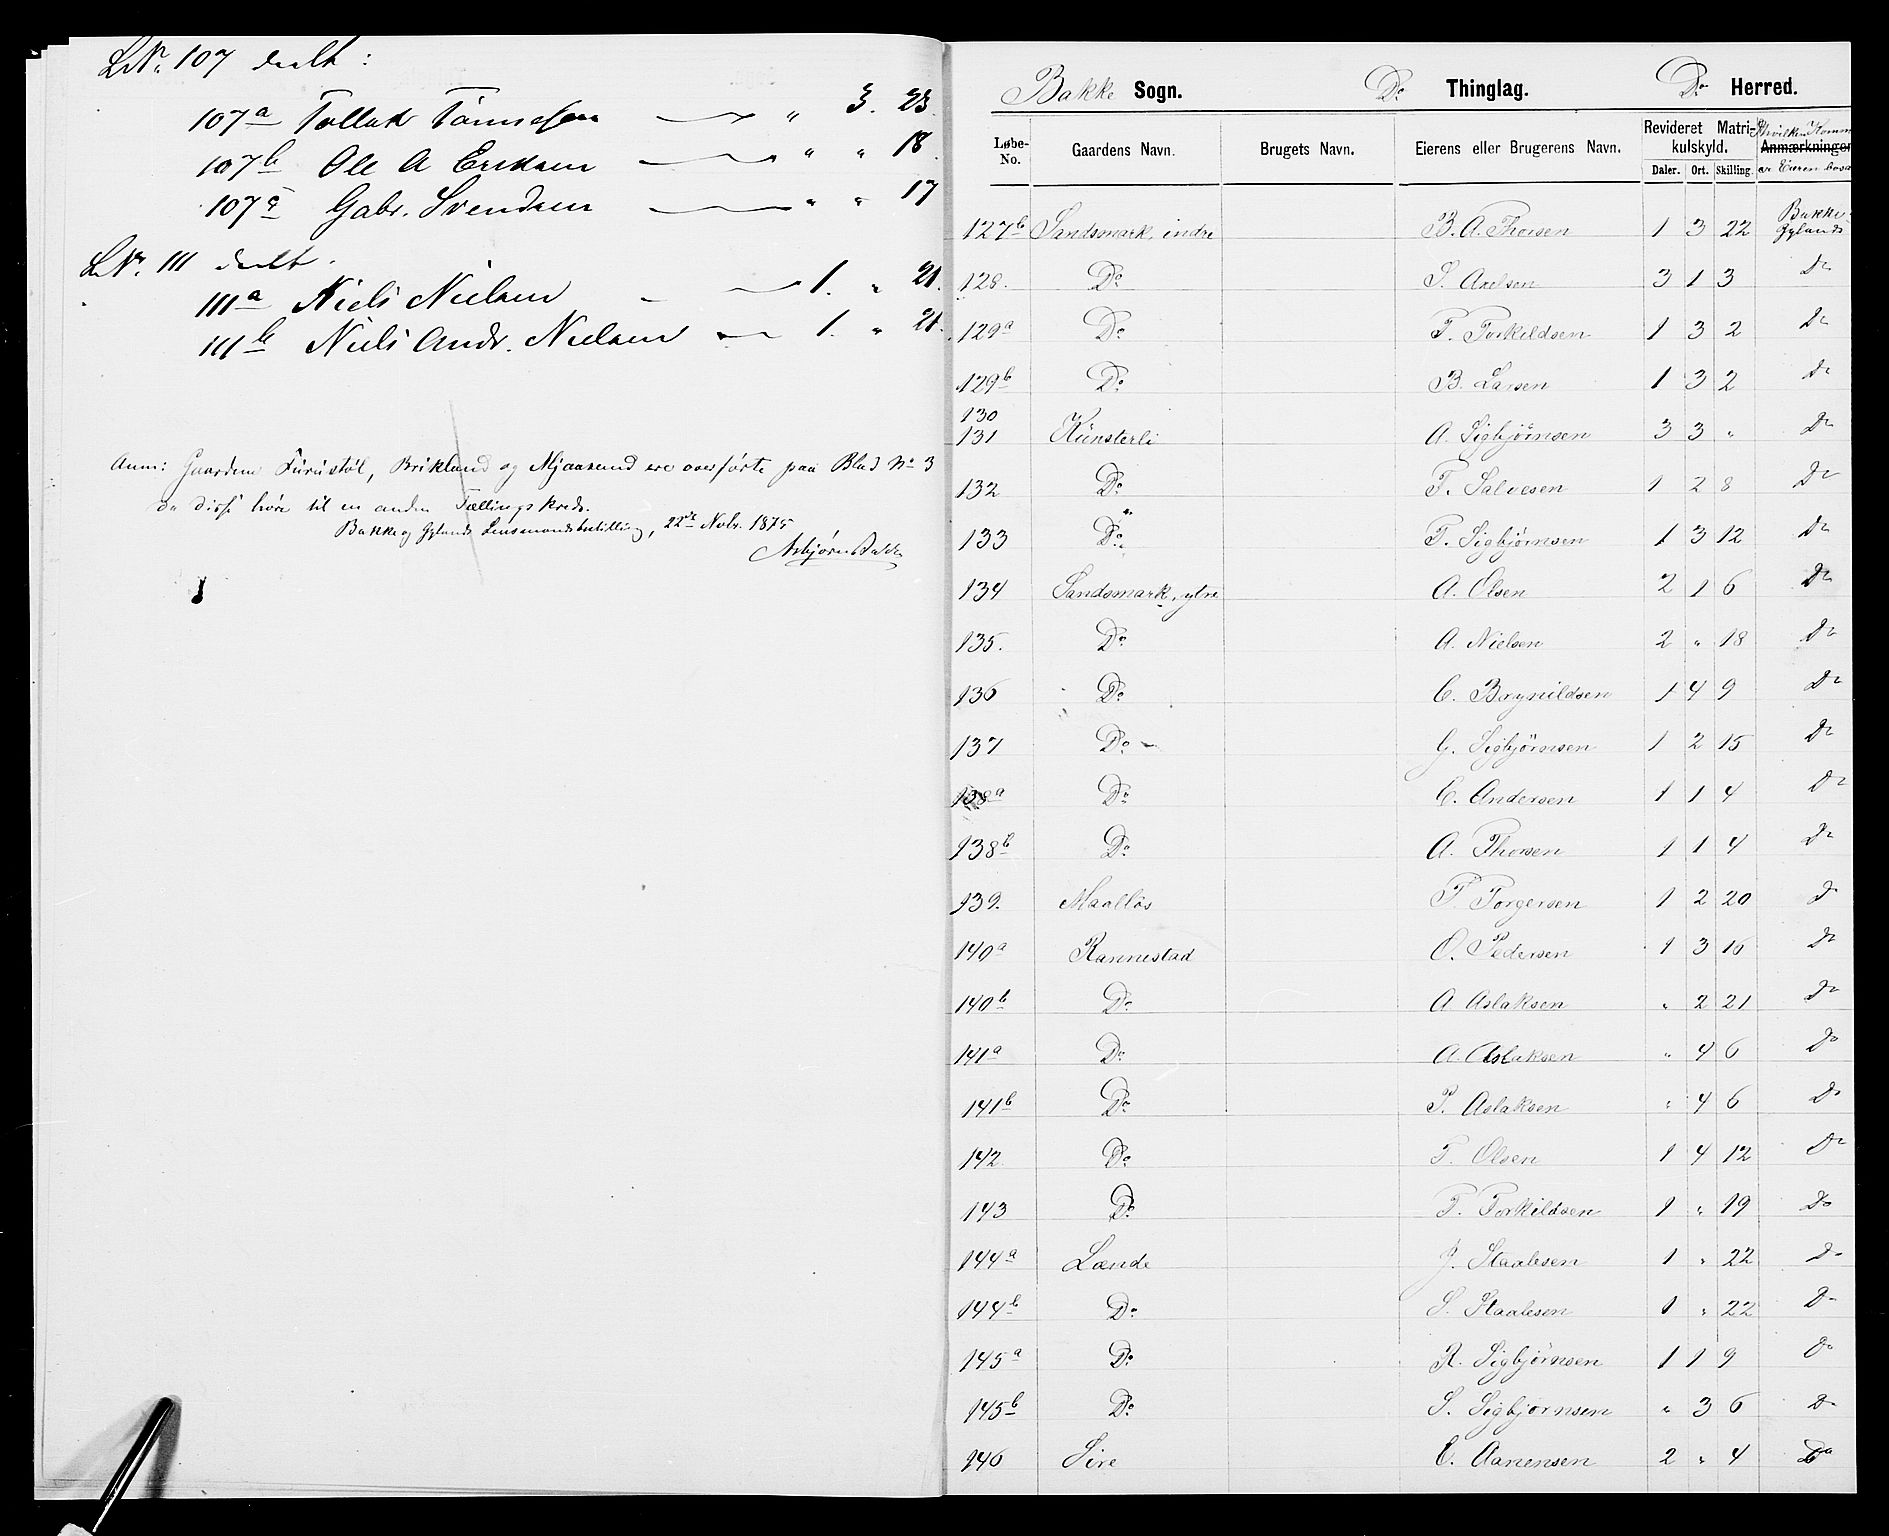 LNr. 107 deelt :
107a Tollak Tønnesen " 3. 23.
107b Ole A Eriksen " " 18.
107c Gabr. Svendsen " " 17
LNr. 111 deelt.
111a Niels Nielsen 1. " 21.
111b Niels Andr. Nielsen 1. " 21.
Anm: Gaardene Furustøl, Brikland og Mjaasund ere overførte paa Blad No 3
da disse høre til en anden Tællingskreds.
Bakke og Gylands Lensmandsbestilling, 22de Novbr. 1875
Asbjørn Bakke
Bakke Sogn. Do Thinglag. Do Herred.
Løbe-No. Gaardens Navn. Brugets Navn. Eierens eller Brugerens Navn. Revideret Matrikulskyld. Anmærkninger
Daler. Ort. Skilling.
127b Sandsmark, indre B. A. Thorsen 1 3 22 Bakke Gylands
128. Do S. Axelsen 3 1 3 Do
129a Do T. Torkildsen 1 3 2 Do
129b Do B. Larsen 1 3 2 Do
130
131 Künsterli A. Sigbjørnsen 3 3 " Do
132 Do T. Salvesen 1 2 8 Do
133 Do T. Sigbjørnsen 1 3 12 Do
134 Sandsmark, ytre A. Olsen 2 1 6 Do
135. Do A. Nielsen 2 " 18 Do
136 Do C. Brynildsen 1 4 9 Do
137 Do G. Sigbjørnsen 1 2 15 Do
138a Do C. Andersen 1 1 4 Do
138b Do A. Thorsen 1 1 4 Do
139. Maalløs T. Torgersen 1 2 20 Do
140a Rannestad O. Pedersen 1 3 16 Do
140b Do A Aslaksen " 2 21 Do
141a Do A. Aslaksen " 4 6 Do
141b Do P. Aslaksen " 4 6 Do
142. Do T. Olsen 1 4 12 Do
143 Do T. Torkildsen 1 " 19 Do
144a Lænde J. Staalesen 1 " 22 Do
144b Do S. Staalesen 1 " 22 Do
145a Do R. Sigbjørnsen 1 1 9 Do
145b Do S. Sigbjørnsen " 3 6 Do
146 Sire E. Aanensen 2 " 4 Do